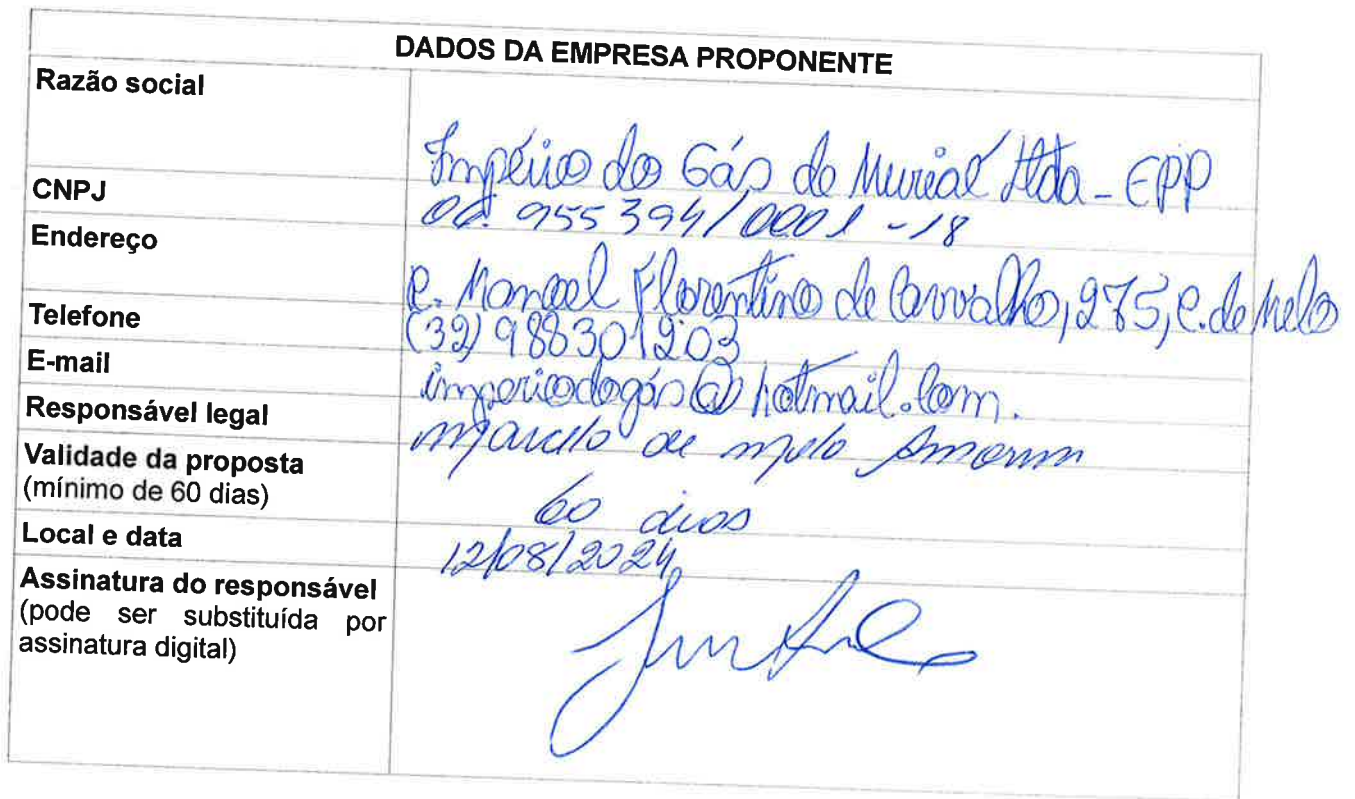 DADOS DA EMPRESA PROPONENTE
Razão social
Império do Gás de Muriaé Ltda - EPP
CNPJ
955 394/0001 -18
Endereço
R. Manoel Florentino de Carvalho, 275, C. de Melo
Telefone
(32) 988301203
E-mail
imperiodogás@hotmail.com.
Responsável legal
Marcelo de melo Amorim
Validade da proposta
(mínimo de 60 dias)
60 dias
Local e data
12/08/2024
Assinatura do responsável
(pode ser substituída por
assinatura digital)